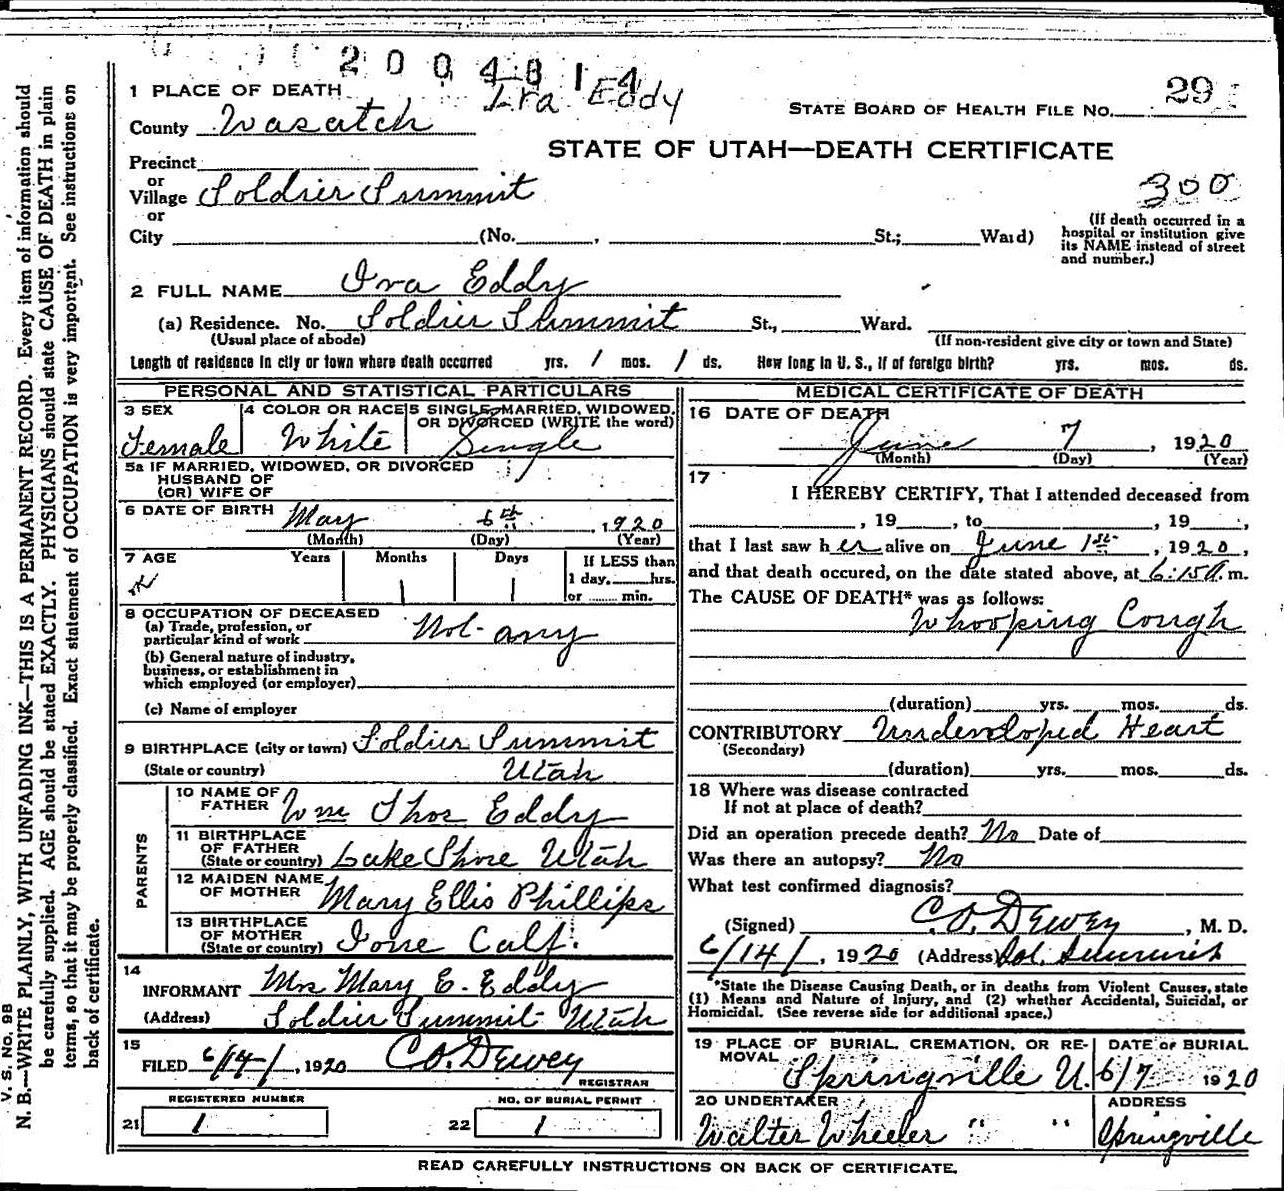 2004814
Ira Eddy
1 PLACE OF DEATH
STATE BOARD OF HEALTH FILE No. 29
County Wasatch
STATE OF UTAH—DEATH CERTIFICATE
Precinct
or
Village Soldier Summit
300
or
City (No. , St.; Ward)
(If death occurred in a
hospital or institution give
its NAME instead of street
and number.)
2 FULL NAME Ira Eddy
(a) Residence. No. Soldier Summit St., Ward.
(Usual place of abode) (If non-resident give city or town and State)
Length of residence in city or town where death occurred yrs. 1 mos. 1 ds. How long in U. S., if of foreign birth? yrs. mos. ds.
PERSONAL AND STATISTICAL PARTICULARS
3 SEX Female
4 COLOR OR RACE White
5 SINGLE, MARRIED, WIDOWED,
OR DIVORCED (WRITE the word)
Single
5a IF MARRIED, WIDOWED, OR DIVORCED
HUSBAND OF
(OR) WIFE OF
6 DATE OF BIRTH May 6th, 1920
(Month) (Day) (Year)
7 AGE Years Months Days
1 1
If LESS than
1 day, hrs.
or min.
8 OCCUPATION OF DECEASED
(a) Trade, profession, or
particular kind of work Not any
(b) General nature of industry,
business, or establishment in
which employed (or employer)
(c) Name of employer
9 BIRTHPLACE (city or town) Soldier Summit
(State or country) Utah
PARENTS
10 NAME OF
FATHER Wm Thos Eddy
11 BIRTHPLACE
OF FATHER
(State or country) Lake Shore Utah
12 MAIDEN NAME
OF MOTHER Mary Ellis Phillips
13 BIRTHPLACE
OF MOTHER
(State or country) Ione Calf.
14
INFORMANT Mrs Mary E. Eddy
(Address) Soldier Summit Utah
15
FILED 6/14/, 1920 C.O. Dewey
REGISTRAR
REGISTERED NUMBER
21 1
NO. OF BURIAL PERMIT
22 1
MEDICAL CERTIFICATE OF DEATH
16 DATE OF DEATH
June 7, 1920
(Month) (Day) (Year)
17
I HEREBY CERTIFY, That I attended deceased from
, 19 , to , 19 ,
that I last saw her alive on June 1st, 1920,
and that death occured, on the date stated above, at 6:15 A. m.
The CAUSE OF DEATH* was as follows:
Whooping Cough
(duration) yrs. mos. ds.
CONTRIBUTORY Undevoloped Heart
(Secondary)
(duration) yrs. mos. ds.
18 Where was disease contracted
If not at place of death?
Did an operation precede death? No Date of
Was there an autopsy? No
What test confirmed diagnosis?
(Signed) C.O. Dewey, M. D.
6/14/, 1920 (Address) Sol. Summit
*State the Disease Causing Death, or in deaths from Violent Causes, state
(1) Means and Nature of Injury, and (2) whether Accidental, Suicidal, or
Homicidal. (See reverse side for additional space.)
19 PLACE OF BURIAL, CREMATION, OR RE-
MOVAL
Springville U.
DATE OF BURIAL
6/7 1920
20 UNDERTAKER
Walter Wheeler " "
ADDRESS
Springville
READ CAREFULLY INSTRUCTIONS ON BACK OF CERTIFICATE.
V. S. No. 9B
N. B.—WRITE PLAINLY, WITH UNFADING INK—THIS IS A PERMANENT RECORD. Every item of information should
be carefully supplied. AGE should be stated EXACTLY. PHYSICIANS should state CAUSE OF DEATH in plain
terms, so that it may be properly classified. Exact statement of OCCUPATION is very important. See instructions on
back of certificate.